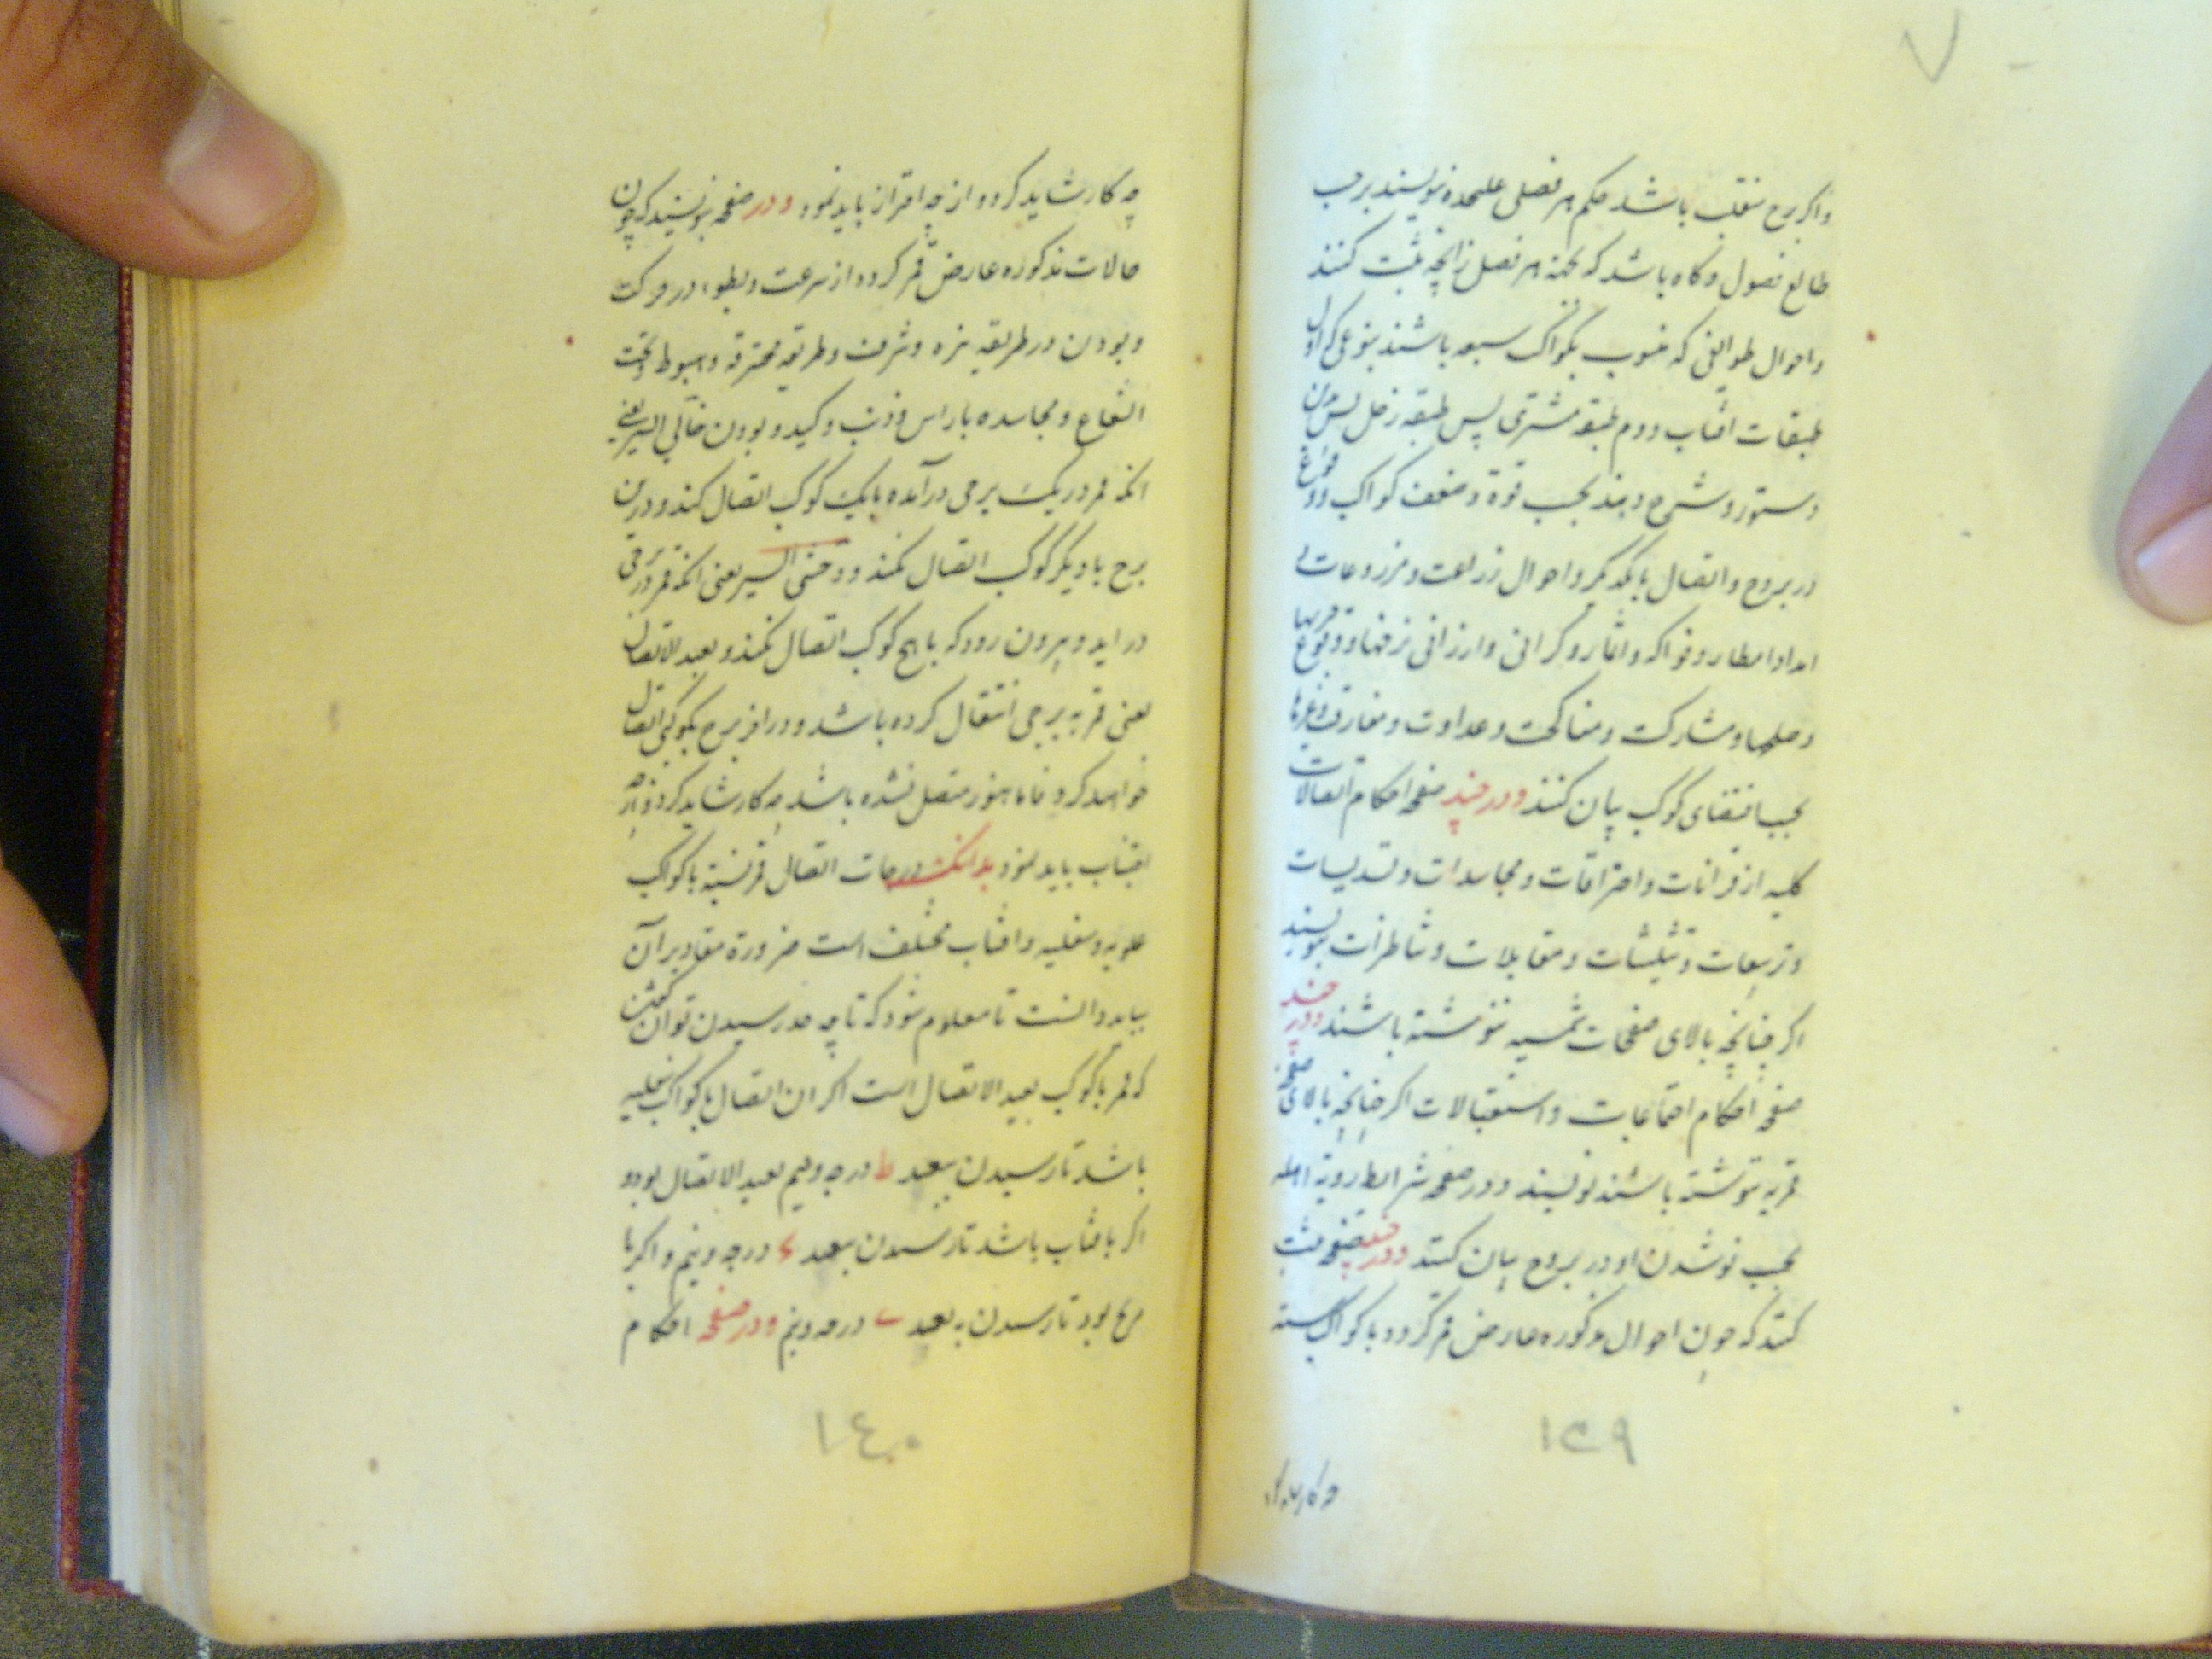 واکر برج منقلب باشد حکم هر فصلی علیحده نویسند برحسب
طالع فصول و کاه باشد که بجهة هر فصل زایجه ثبت کنند
و احوال طوایفی که منسوب بکواکب سبعه باشند بنوعی که اول
طبقات افتاب دوم طبقه مشتری پس طبقه زحل پس
دستور و شرح دهند بحسب قوة و ضعف کواکب و وقوع
در بروج و اتصال بایکدیکر و احوال زراعت و مزروعات
امداد امطار و فواکه و اثمار و کرانی و ارزانی نرخها و وقوع حربها
و صلحها و مشارکت و مناکحت و عداوت و مفارقت و غیرها
بحسب اقتضای کوکب بیان کنند و در چند صفحه احکام اتصالات
کلیه از قرانات و احتراقات و مجاسدات و تسدیسات
و تربیعات و تثلیثات و مقابلات و تناظرات بنویسند
اکر چنانچه بالای صفحات شمسیه ننوشته باشند و در چند
صفحه احکام اجتماعات و استقبالات اکر چنانچه بالای صفحه
قمریه ننوشته باشند نویسند و در صفحه شرایط رویة اهله
بحسب نوشدن او در بروج بیان کنند و در چند صفحه ثبت
کنند که چون احوال مذکوره عارض قمر کردد با کواکب سته
١٣٩
چه کار شاید کرد و از چه احتراز باید نمود و در صفحه بنویسند که چون
حالات مذکوره عارض قمر کردد از سرعت و بطوء در حرکت
و بودن در طریقه نیره و شرف و طریقه محترقه و هبوط و تحت
الشعاع و مجاسده با راس و ذنب و کید و بودن خالی السیر یعنی
انکه قمر در یک برجی درآمده با یک کوکب اتصال کند و در ان
برج با دیکر کوکب اتصال نکند و وحشی السیر یعنی انکه قمر در برجی
در اید و بیرون رود که با هیچ کوکب اتصال نکند و بعید الاتصال
یعنی قمر به برجی انتقال کرده باشد و در اخر برج بکوکبی اتصال
خواهد کرد فاما هنوز متصل نشده باشد چه کار شاید کرد و از چه
اجتناب باید نمود بدانکه درجات اتصال قمر نسبة با کواکب
علویه و سفلیه و افتاب مختلف است ضرورة مقادیر آن
بباید دانست تا معلوم شود که تا چه حد رسیدن توان کفتن
که قمر با کوکب بعید الاتصال است اکر ان اتصال با کواکب سفلیه
باشد تا رسیدن ببعد ط درجه و نیم بعید الاتصال بود و
اکر بافتاب باشد تا رسیدن ببعد درجه و نیم و اکر با
مریخ بود تا رسیدن به بعد درجه و نیم و در صفحه احکام
١٤٠